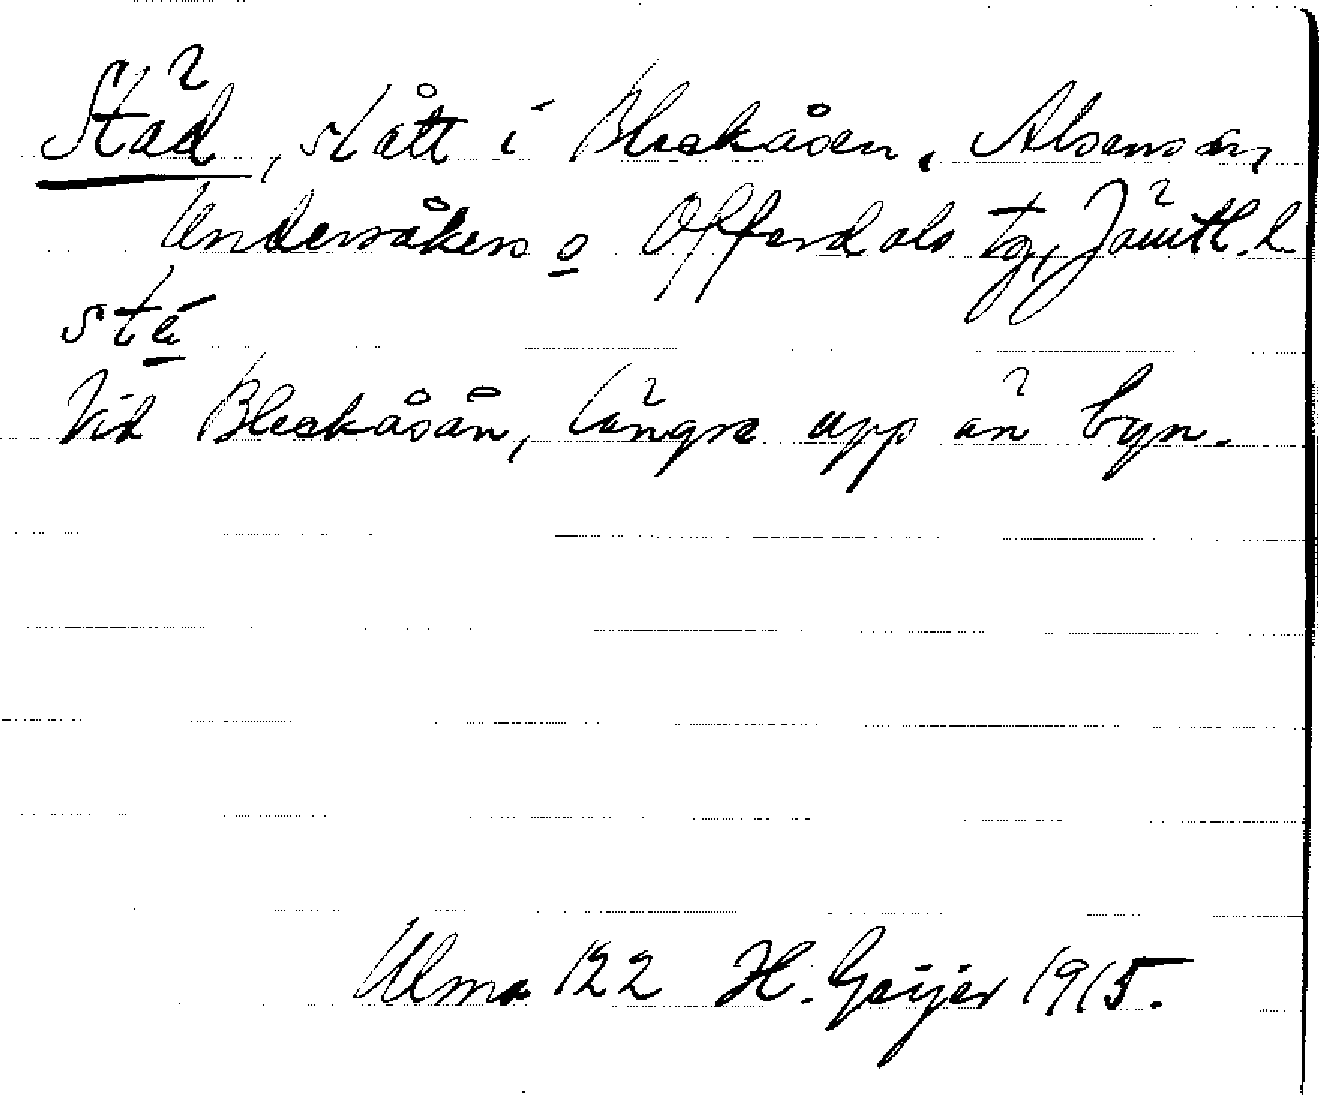 Städ, slått i Bleckåsen, Alsens sn,
Undersåkers o Offerdals tg, Jämtl. l
sté
Vid Bleckåsån, längre upp än byn.
Ulma 122 H. Geijer 1915.